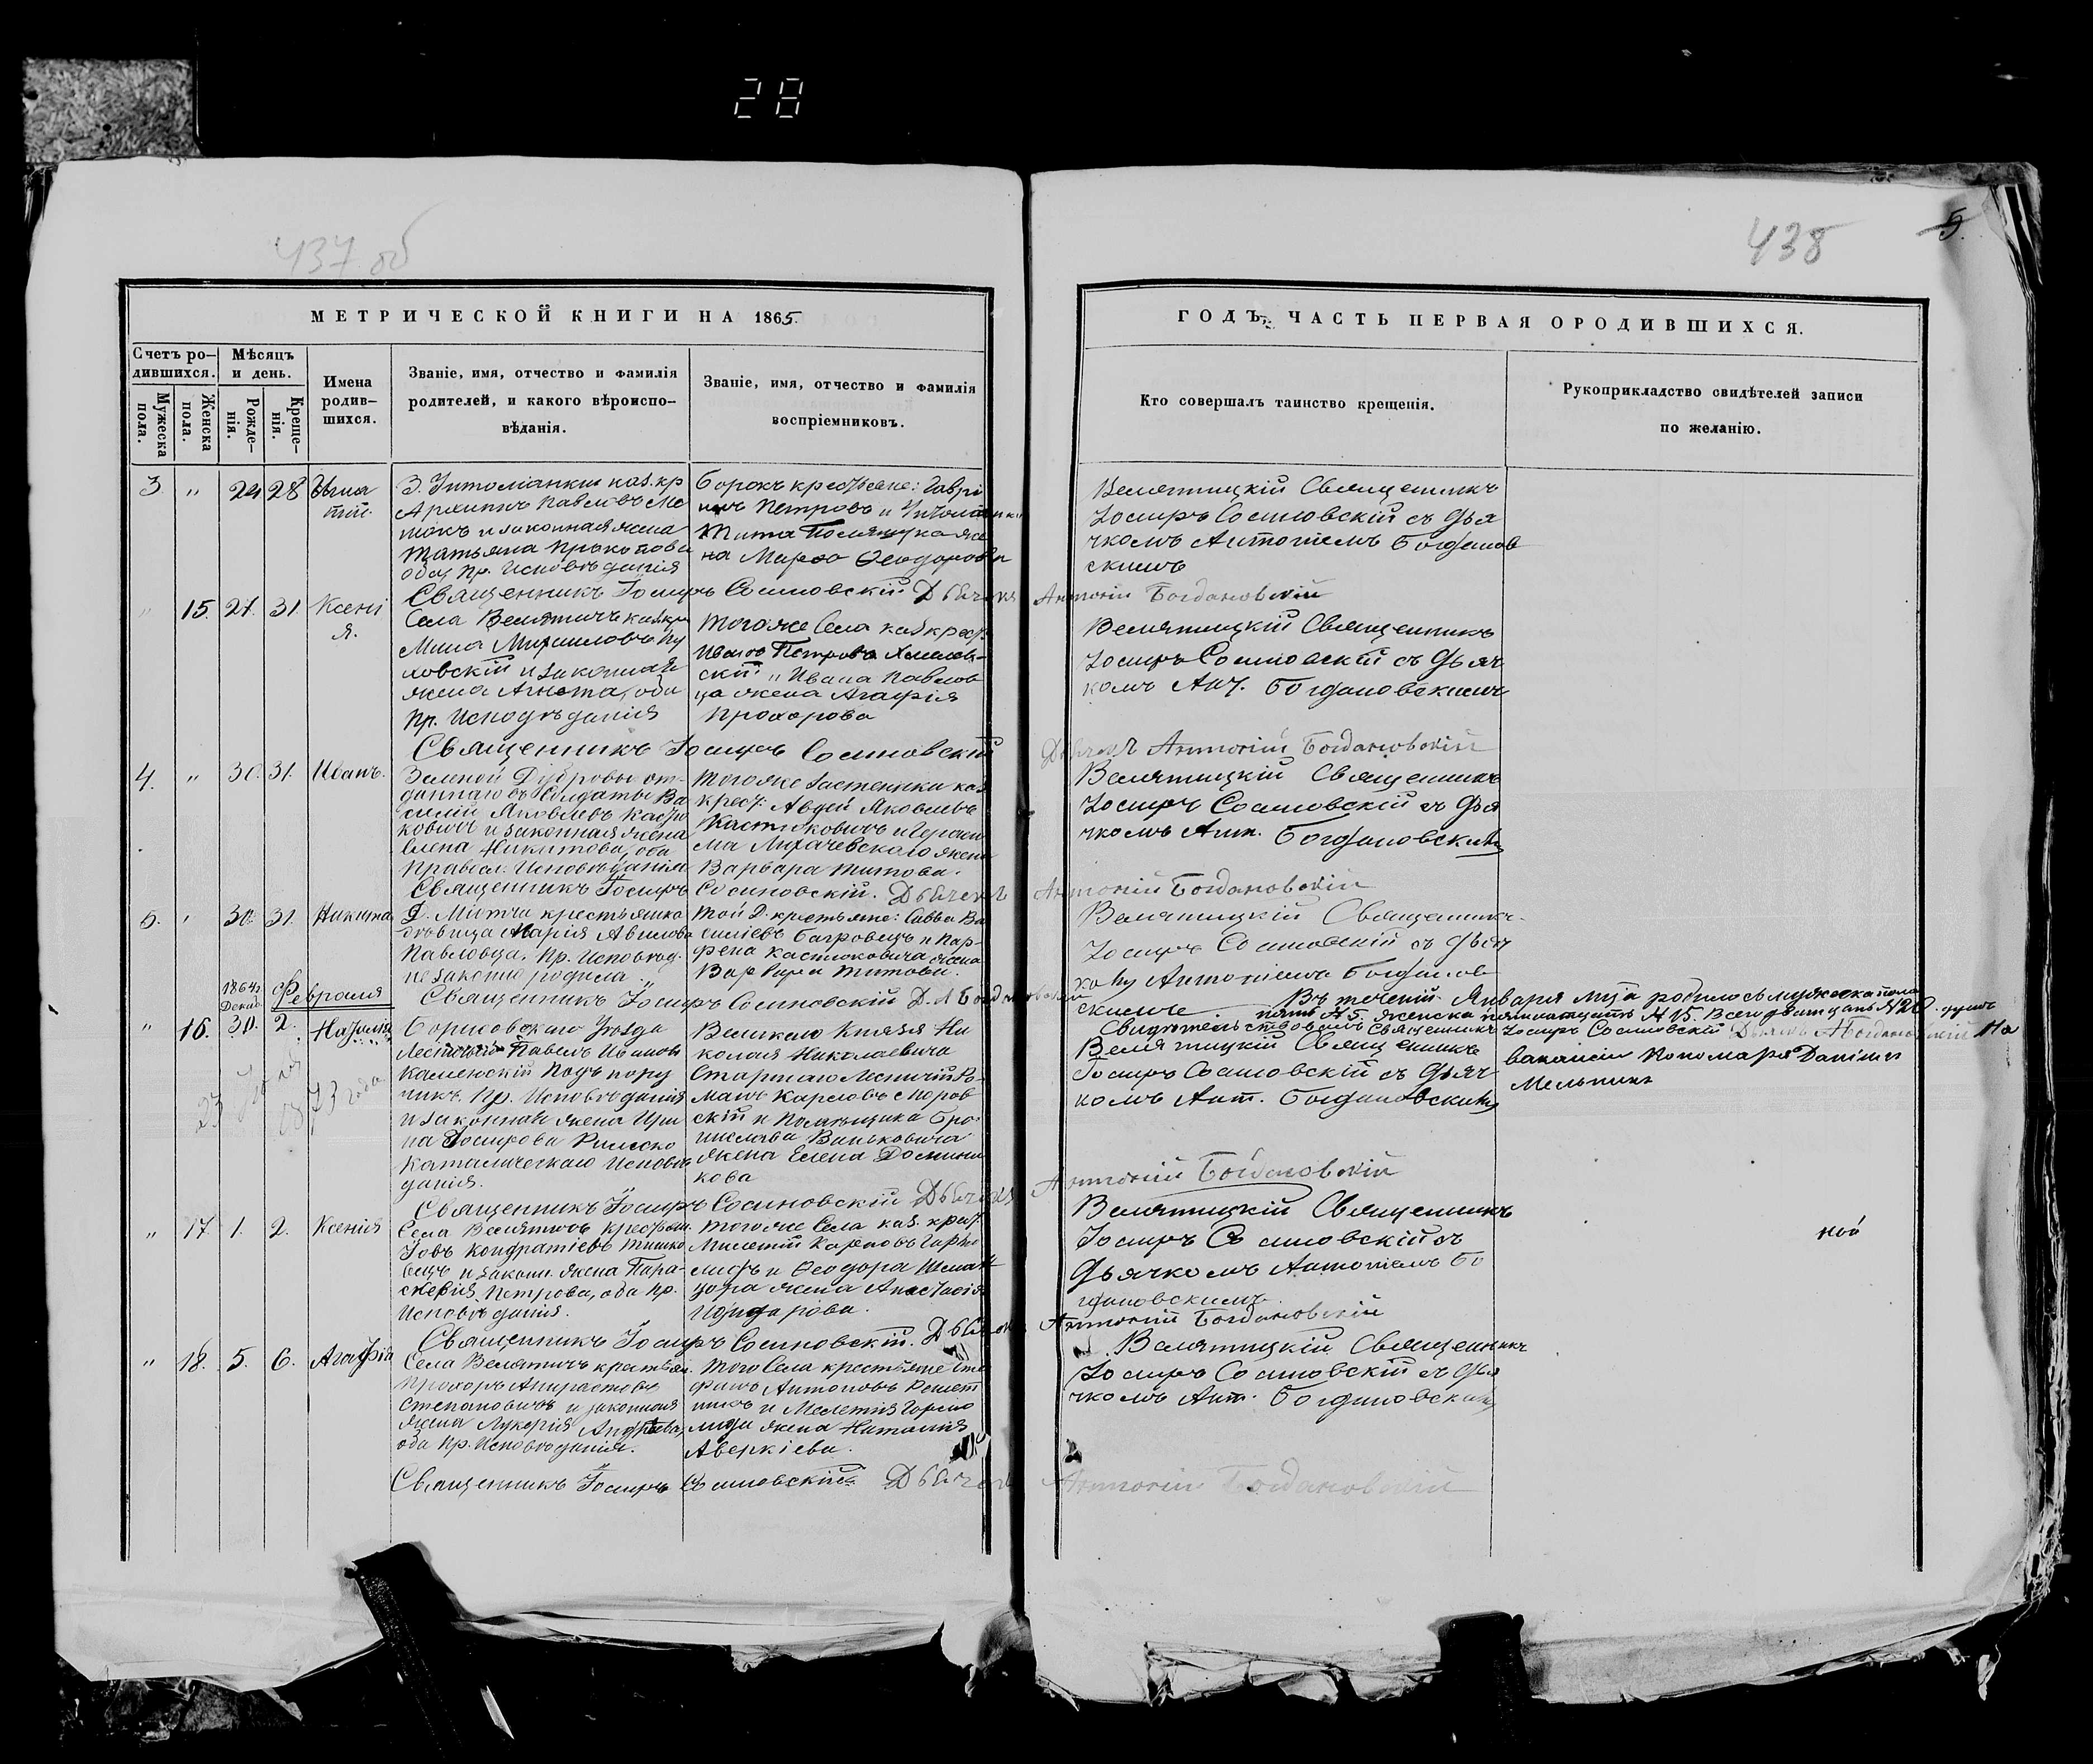 28
437 об
438
5.
МЕТРИЧЕСКОЙ КНИГИ НА 1865.
ГОДЪ, ЧАСТЬ ПЕРВАЯ О РОДИВШИХСЯ.
Счетъ ро-
дившихся.
Мужеска
пола.
Женска
пола.
Мѣсяцъ
и день.
Рожде-
нія.
Креще-
нія.
Имена
родив-
шихся.
Званіе, имя, отчество и фамилія
родителей, и какого вѣроиспо-
вѣданія.
Званіе, имя, отчество и фамилія
воспріемниковъ.
Кто совершалъ таинство крещенія.
Рукоприкладство свидѣтелей записи
по желанію.
3 " 24 28 Игна
тій.
каз. кр
Архипъ Павловъ
и законная жена
Татьяна Прокопова
оба Пр. Исповѣданія
Борокъ крестьяне: Гаврі
илъ Петровъ и
Тита жe
на Марѳа Ѳеодорова
Велятицкій Священникъ
Іосифъ Сосиновскій съ Дья
чкомъ Антоніемъ Богданов
скимъ
Священникъ Іосифъ Сосиновскій Дьячекъ Антоній Богдановскій
" 15. 27. 31. Ксені
я.
Села Велятичъ каз. кр.
Мина Михаиловъ Пу
ховскій и законная
жена Агнета, оба
Пр. Исповѣданія
Тогоже Села каз. крест.
Иванъ Петровъ
скій " Ивана Павлов
ца жена Агафія
Прохорова
Велятицкій Священникъ
Іосифъ Сосиновскій съ Дьяч
комъ Ант. Богдановскимъ
Священникъ Іосифъ Сосиновскій Дьячекъ Антоній Богдановскій
4. " 30. 31. Иванъ.
Зеленой Дубровы от-
даннаго въ Солдаты Ва
силій Яковлевъ Кастю
ковичъ и законная жена
Елена Никитова, оба
Правосл. Исповѣданія
Тогоже Застенка каз.
крест. Авдей Яковлевъ
Кастюковичъ и Гераси
ма Лихачевскаго жена
Варвара Титова.
Велятицкій Священникъ
Іосифъ Сосиновскій съ Дья
чкомъ Ант. Богдановскимъ
Священникъ Іосифъ Сосиновскій. Дьячекъ Антоній Богдановскій
5. " 30. 31. Никита
Д. Мстижи крестьянка
дѣвица Марія Авилова
Павловца. Пр. Исповѣд.
незаконно родила "
Той Д. крестьяне: Савва Ва
силіевъ Багровецъ и Пар-
фена Кастюковича жена
Варвара Титова.
Велятицкій Священникъ
Іосифъ Сосиновскій съ Дьяч
комъ Антоніемъ Богданов
скимъ
Священникъ Іосифъ Сосиновскій Д. А Богдановскій
Въ теченіи Января м-ца родилось мужеска пола
пять № 5. женска пятнадцать № 15. Всего двадцать № 20. душъ
Свидѣтельствовалъ Священникъ Іосифъ Сосиновскій Дьячекъ А Богдановскій На
вакансіи Пономаря Даніилъ
Мельникъ
1864 г.
Декаб.
Февраля
" 16. 30. 2. Наталія
Борисовскаго Уѣзда
Лесничій Павелъ Ивановъ
Каменскій Подъ пору
чикъ Пр. Исповѣданія
и законная жена Ири
на Іосифова Римско
Католическаго Исповѣ
данія.
Великаго Князя Ни
колая Николаевича
Старшаго Лесничій Ро-
манъ Карловъ
скій и Помѣщика Бро
нислава Ваньковича
жена Елена Домини
кова
Велятицкій Священникъ
Іосифъ Сосиновскій съ Дьяч
комъ Ант. Богдановскимъ
Священникъ Іосифъ Сосиновскій Дьячекъ Антоній Богдановскій
" 17. 1. 2. Ксенія
Села Велятичъ крестьян.
Іовъ Кондратіевъ Тишко
вецъ и законн. жена Пара-
скевія Петрова, оба Пр.
Исповѣданія.
Тогоже Села каз. крест.
Милетій Карповъ
и Ѳеодора
жена Анастасія
Велятицкій Священникъ
Іосифъ Сосиновскій съ
Дьячкомъ Антоніемъ Бо
гдановскимъ
Священникъ Іосифъ Сосиновскій. Дьячекъ Антоній Богдановскій
" 18. 5. 6. Агафія
Села Велятичъ крестьян.
Прохоръ
Степановичъ и законная
жена Лукерія Андреева,
оба Пр. Исповѣданія.
Того Села крестьяне Сте
фанъ Антоновъ
и Мелетія
жена Наталія
Аверкіева.
Велятицкій Священникъ
Іосифъ Сосиновскій съ Дья
чкомъ Ант. Богдановскимъ
Священникъ Іосифъ Сосиновскій Дьячекъ Антоній Богдановскій